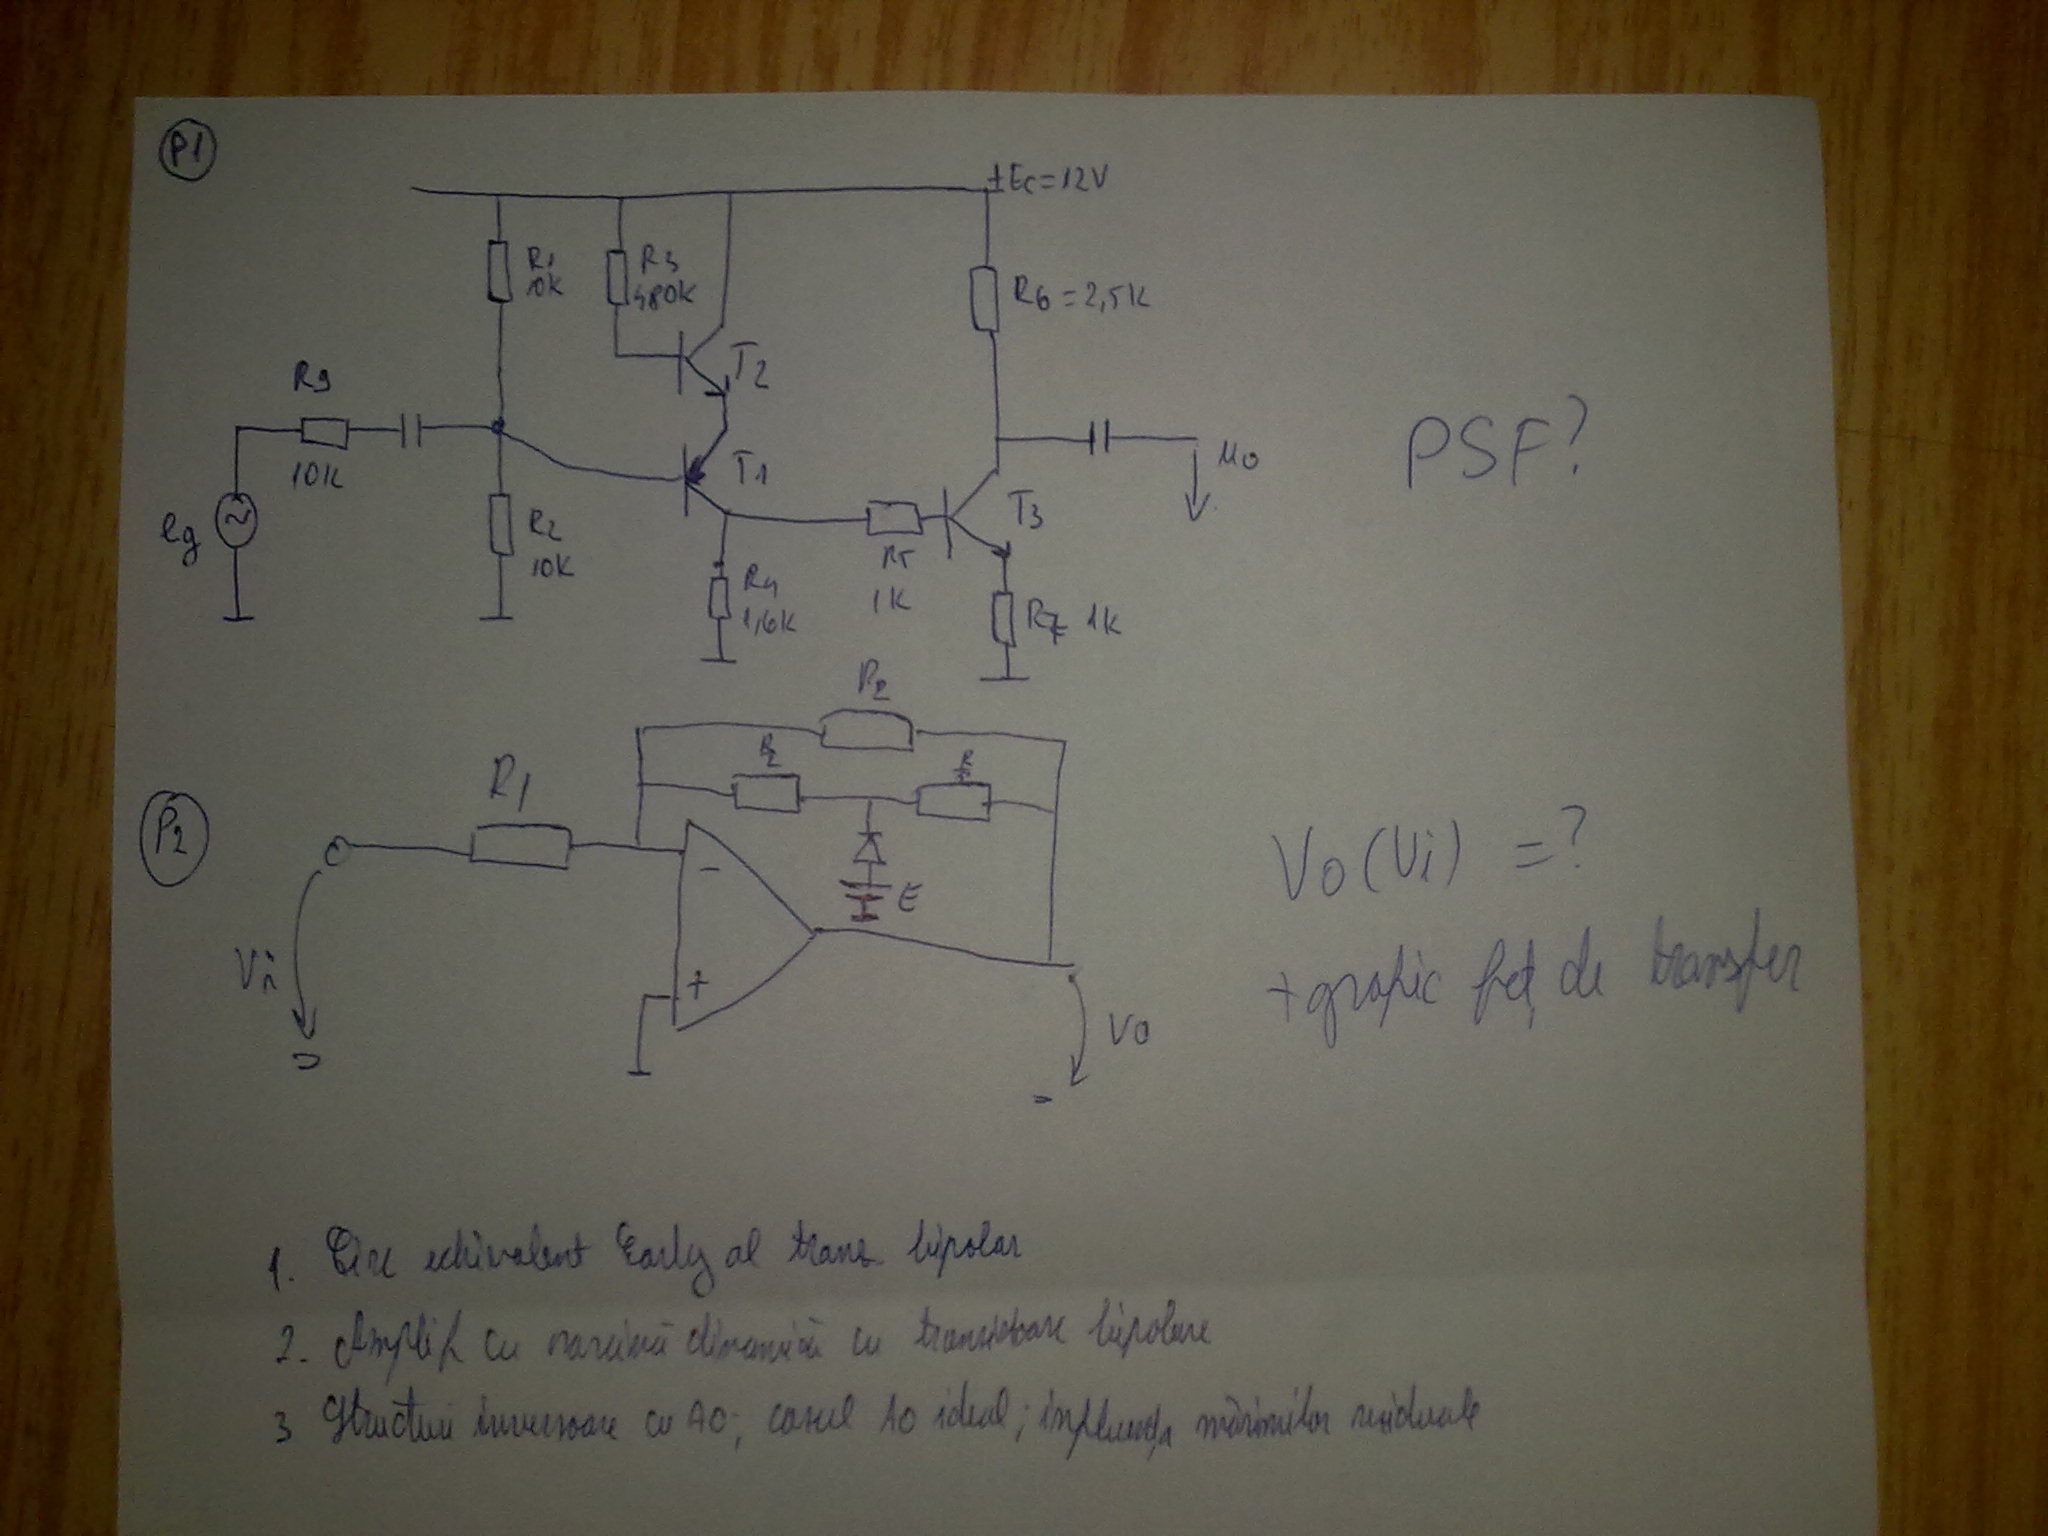 P1
+Ec=12V
R1
10K
R3
480K
R6=2,5K
T2
Rg
10K
T1
uo
PSF?
eg
R2
10K
R4
1,6K
R5
1K
T3
R7 1K
P2
R2
R1
R
2
R
2
-
+
E
Vi
Vo
Vo(Vi) =?
+grafic fct de transfer
1. Circ echivalent Early al tranz bipolar
2. Amplif cu sarcină dinamică cu tranzistoare bipolare
3 Structuri inversoare cu AO; cazul AO ideal; influența mărimilor reziduale